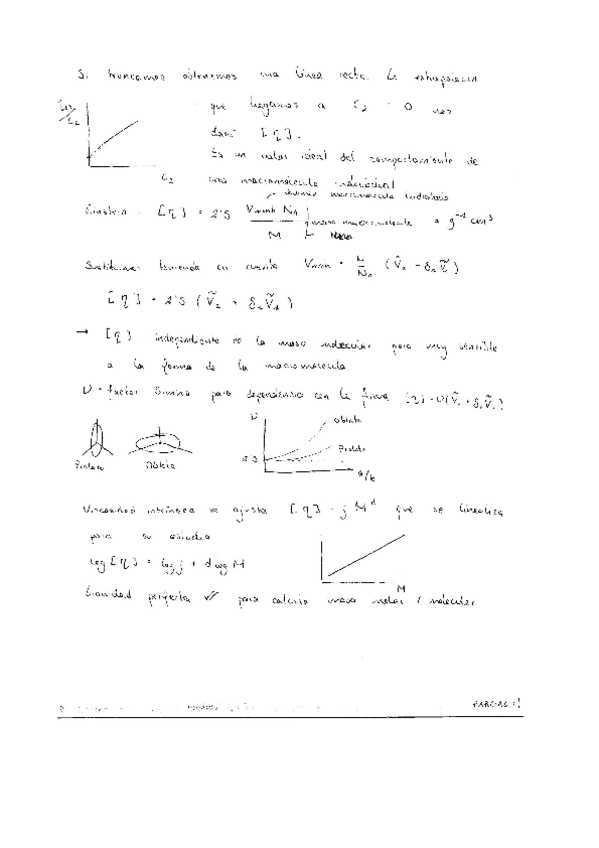 Si truncamos obtenemos una línea recta. La extrapolación
que hagamos a C2 = 0 nos
dará [η].
Es un valor ideal del comportamiento de
C2 una macromolécula individual
volumen macromolécula hidratada
Einstein: [η] = 2'5 Vmolh NA / M masa macromolécula = g⁻¹ cm³
Sustituimos teniendo en cuenta Vmolh = M/NA (Ṽ2 + δ1 Ṽ1)
[η] = 2'5 (Ṽ2 + δ1 Ṽ1)
→ [η] independiente de la masa molecular pero muy sensible
a la forma de la macromolécula
ν = factor Simha para dependencia con la forma [η] = ν(Ṽ2 + δ1 Ṽ1)
ν Oblato
Prolato
2'5
Prolato Oblato a/b
Viscosidad intrínseca se ajusta [η] = j M^α que se lineariza
para su estudio
log [η] = log j + α log M
M
perfecta para calcular masa molar / molecular
PARCIAL 1